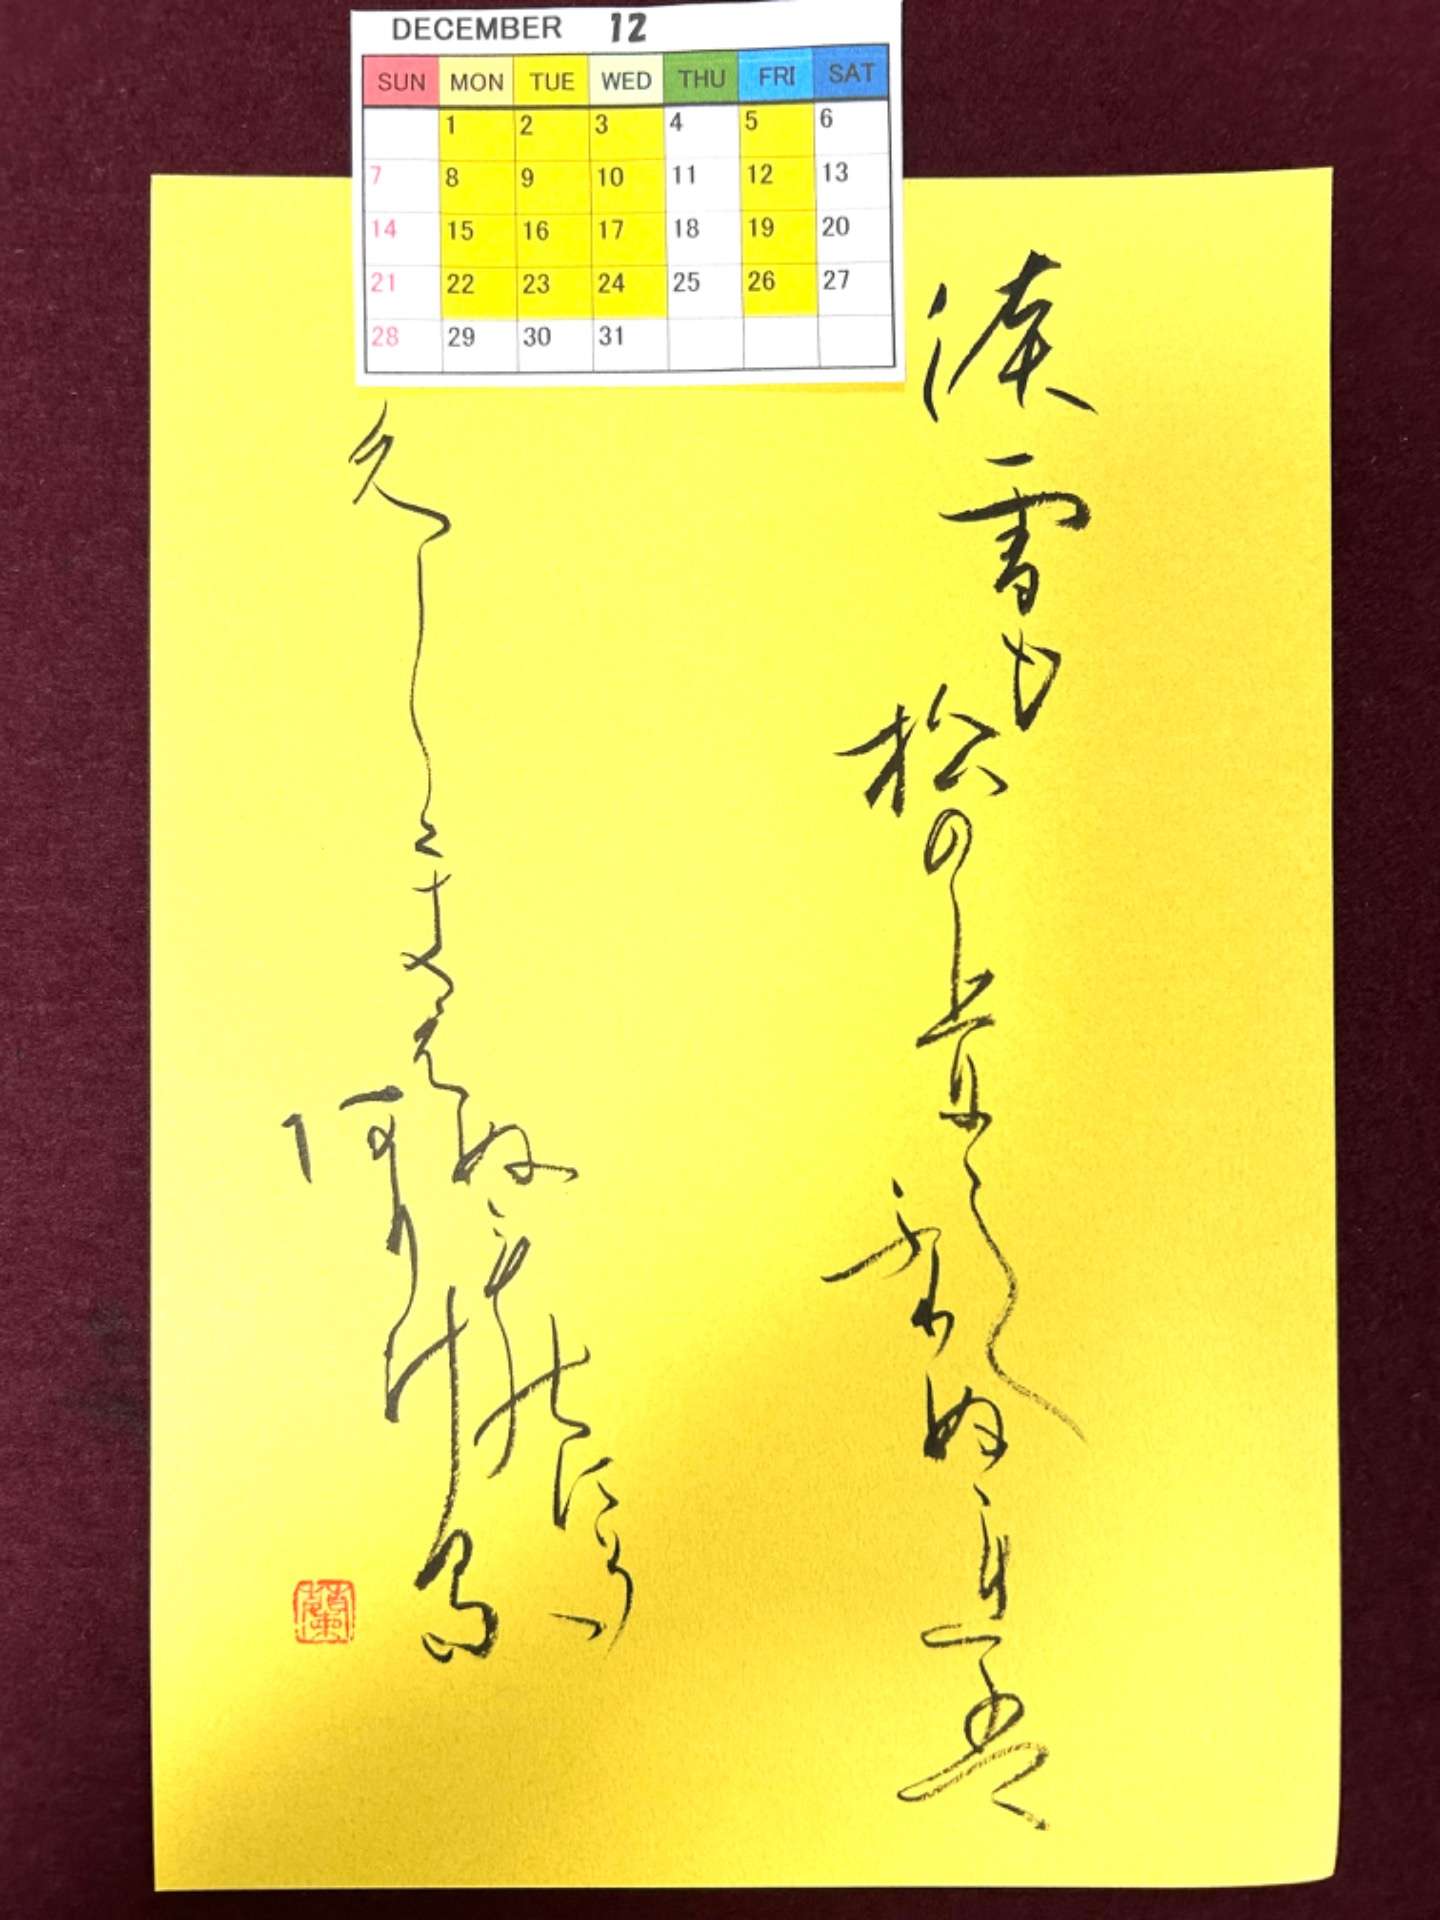 DECEMBER 12
SUN MON TUE WED THU FRI SAT
1 2 3 4 5 6
7 8 9 10 11 12 13
14 15 16 17 18 19 20
21 22 23 24 25 26 27
28 29 30 31
沫雪も
松の上にし
ぬ
久しくきえぬも
にそ
阿りける